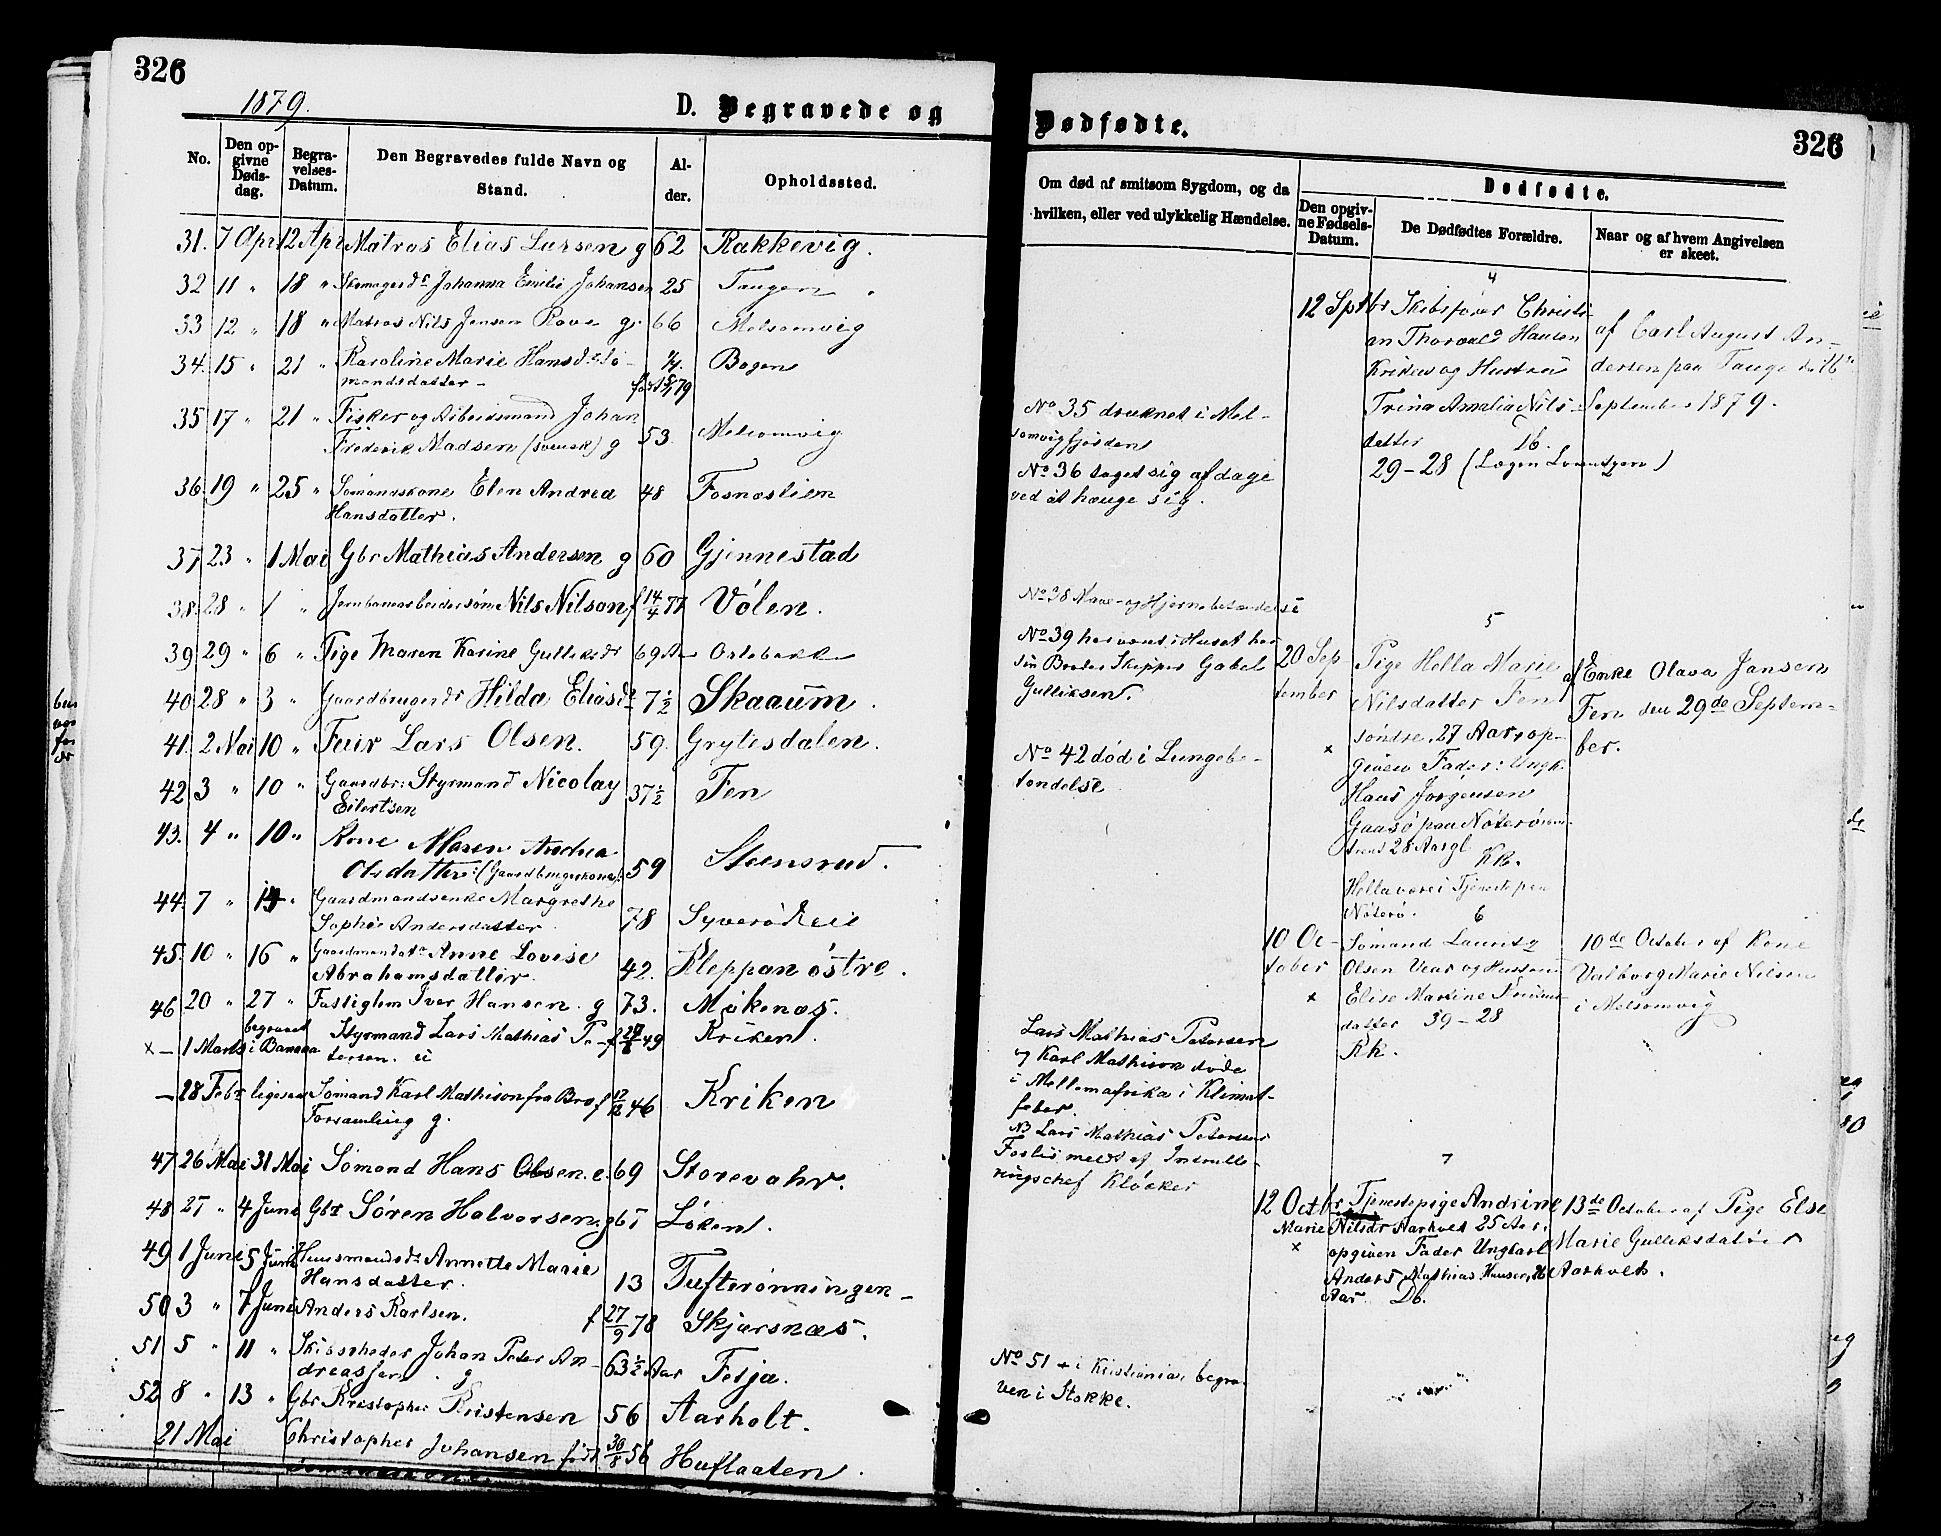 326
1879.
D. Begravede og
No.
Den opgivne Dødsdag.
Begravelses-Datum.
Den Begravedes fulde Navn og Stand.
Alder.
Opholdssted.
31. 7 Apr 12 Apr Matros Elias Larsen g 62 Rakkevig.
32 11 " 18 " Johanna Emilie Johansen 25 Tangen
33 12 " 18 " Matros Nils Jensen Rove g. 66 Melsomvig
34. 15 " 21 " Karoline Marie Hansdr Sø-
mandsdatter - Bogen
35 17 " 21 " Fisker og Arbeidsmand Johan
Frederik Madsen (svensk) g 53. Melsomvig
36. 19 " 25 " Sømandskone Elen Andrea 48 Fosnæstien
Hansdatter.
37 23 " 1 Mai Gbr Mathias Andersen g 60 Gjennestad
38. 28 " 1 " Nils Nilson f 14/4 77 Vølen.
39 29 " 6 " Pige Maren Karine Gulliksdr 69 Aar
40 28 " 3 " Gaardbrugerdr Hilda Eliasdr 7 1/2 Skaaum.
41. 2 Mai 10 " Lars Olsen. 59. Grytesdalen.
42 3 " 10 " Gaardbr: Styrmand Nicolay 37 1/2 Fen
Eilertsen
43. 4 " 10 " Kone Maren Andrea
Olsdatter (Gaardbrugerkone). 59 Steensrud.
44. 7 " 14 " Gaardmandsenke Margrethe
Sophie Andersdatter 78 Syverød Eie
45. 10 " 16 " Anne Lovise
Abrahamsdatter. 42. Kleppan østre.
46 20 " 27 " Fattiglem Iver Hansen. g 73. Møkenæs.
× — 1 Marts begravet i Banana Styrmand Lars Mathias Pe-
tersen. u f 49 Kriken.
— 28 Febr ligesaa Sømand Karl Mathison fra Br
Forsamling g. 46 Kriken
47 26 Mai 31 Mai Sømand Hans Olsen. e. 69 Storevahr.
48 27 " 4 Juni Gbr Søren Halvorsen g 67 Løken.
49 1 June 5 Juni Huusmandsdr Annette Marie
Hansdatter. 13 Tufterønningen -
50 3 " 7 Juni Anders Karlsen. f 27/9 78 Skjærsnæs.
51 5 " 11 " Skibsrheder Johan Peter An-
dreassen. g 63 1/2 Aar Fesja.
52 8 " 13 " Gbr Kristopher Kristensen 56 Aarholt.
21 Mai Christopher Johansen født 30/8 56 Huflaaten.
Dødfødte.
326
Om død af smitsom Sygdom, og da
hvilken, eller ved ulykkelig Hændelse.
Dødfødte.
Den opgivne Fødsels-Datum.
De Dødfødtes Forældre.
Naar og af hvem Angivelsen er skeet.
No 35 druknet i Mel-
somvigfjorden
No 36 taget sig af dage
ved at hænge sig.
No 38 Mave- og Hjernebetændelse
No 39 har været i Huset hos
sin Broder Skipper Gabel
Gulliksen.
No 42 død i Lungebe-
tændelse
Lars Mathias Petersen
og Karl Mathison døde
i Mellemafrika i Klimat-
feber.
NB Lars Mathias Petersens
Forlis meldt af Indrulle-
ringschef Kløcker
No 51 + i Kristiania, begra-
ven i Stokke.
4
12 Sptbr Skibsfører Christi-
an Thorvald Hansen
Kriken og Hustru
Trina Amalia Nils-
datter 16.
29 - 28 (Lægen Lorentzen)
af Carl August An-
dersen paa Tange d. 16de
September 1879.
5
20 September
×
Pige Hella Marie
Nilsdatter Fen
søndre, 27 Aar, op-
given Fader: Ungk.
Hans Jørgensen
Gaasø paa Nøterø
28 Aar gl
KR.
Hella være i Tjeneste paa
Nøterø.
af Enke Olava Jansen
Fen den 29de Septem-
ber.
6
10 October
×
Sømand Lauritz
Olsen Vear og Hustru
Elise Martine
datter 39 - 28
Kk.
10de October af Kone
Valborg Marie Nilsen
i Melsomvig
7
12 Octbr Tjenestepige Andrine
Marie Nilsdr Aarholt 25 Aar,
×
opgiven Fader Ungkarl
Anders Mathias Hansen, 26
Aar. Db.
13de October af Pige Else
Marie Gulliksdatter
Aarholt.